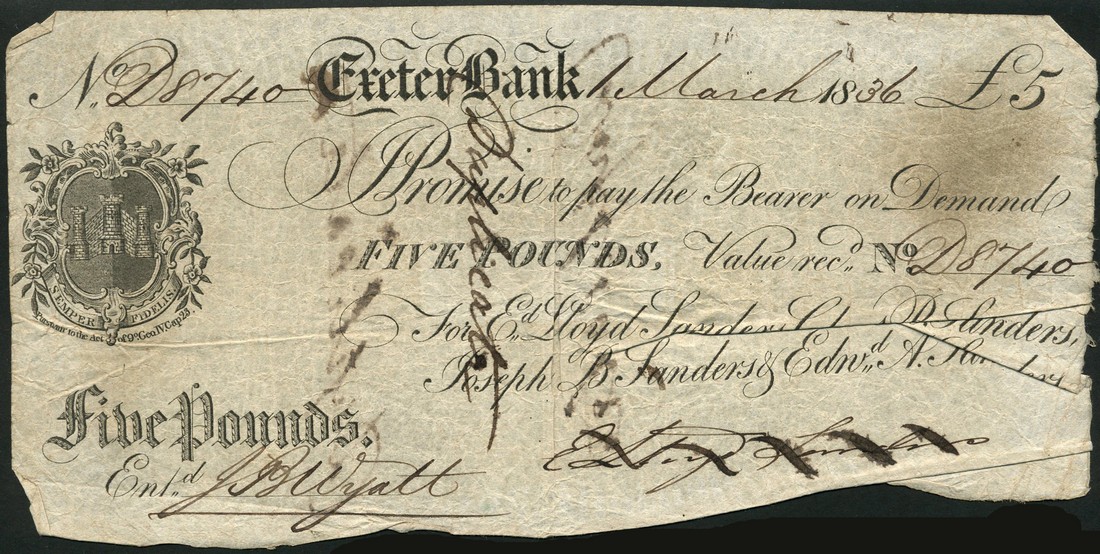 No. D8740 Exeter Bank 1 March 1836 £5
I Promise to pay the Bearer on Demand
FIVE POUNDS, Value recd. No. D8740
SEMPER FIDELIS
Pursuant to the Act of 9o. Geo. IV. Cap 23.
For Ed Lloyd Sanders P. Sanders,
Joseph B Sanders & Edwd. A.
Five Pounds.
Entd. JB Wyatt
Duplicate